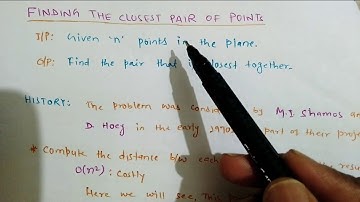 FINDING THE CLOSEST PAIR OF POINTS
I/P: Given 'n' points in the plane.
O/P: Find the pair that is closest together.
HISTORY: The problem was by M.I Shamos
D. Hoey in the early part of their
* Compute the distance b/w each
O(n²): Costly
Here we will see, This